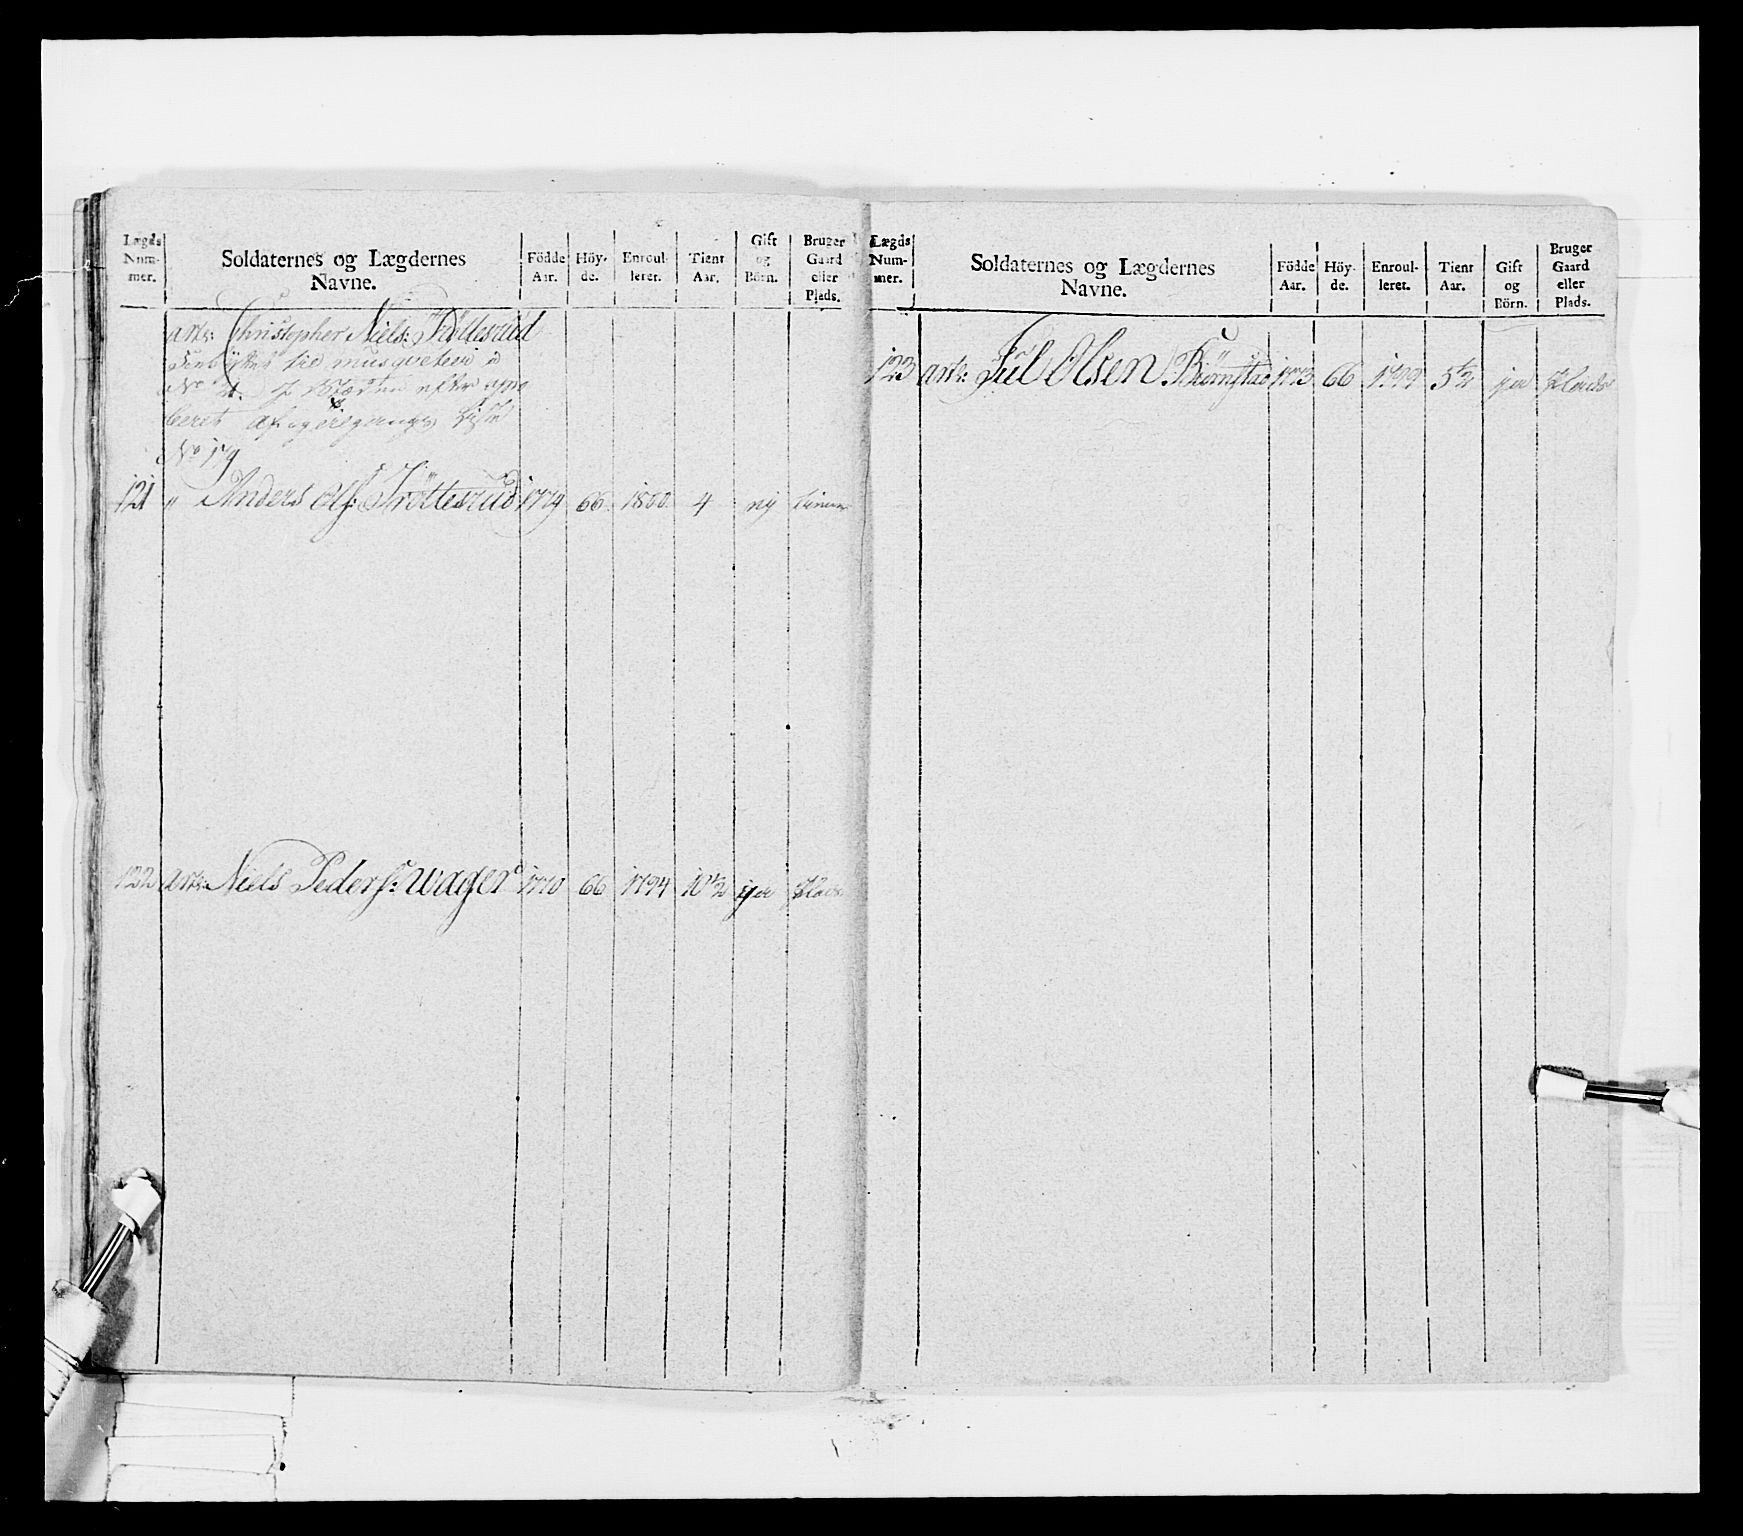 Lægds Num- mer.
Soldaternes og Lægdernes Navne.
Födde Aar.
Höy- de.
Enroul- leret.
Tient Aar.
Gift og Börn.
Bruger Gaard eller Plads.
arts: Christopher Niels: Tröttesrüd
til musqveteur
No
No 19
121 " Anders Ols: Tröttesrüd 1779 66 1800 4 nij
122 arts: Niels Peders: Wager 1770 66 1794 10½ ija Plads
Lægds Num- mer.
Soldaternes og Lægdernes Navne.
Födde Aar.
Höy- de.
Enroul- leret.
Tient Aar.
Gift og Börn.
Bruger Gaard eller Plads.
123 arts: Jül Olsen Biörnstad 1773 66 1799 5½ ija Plads